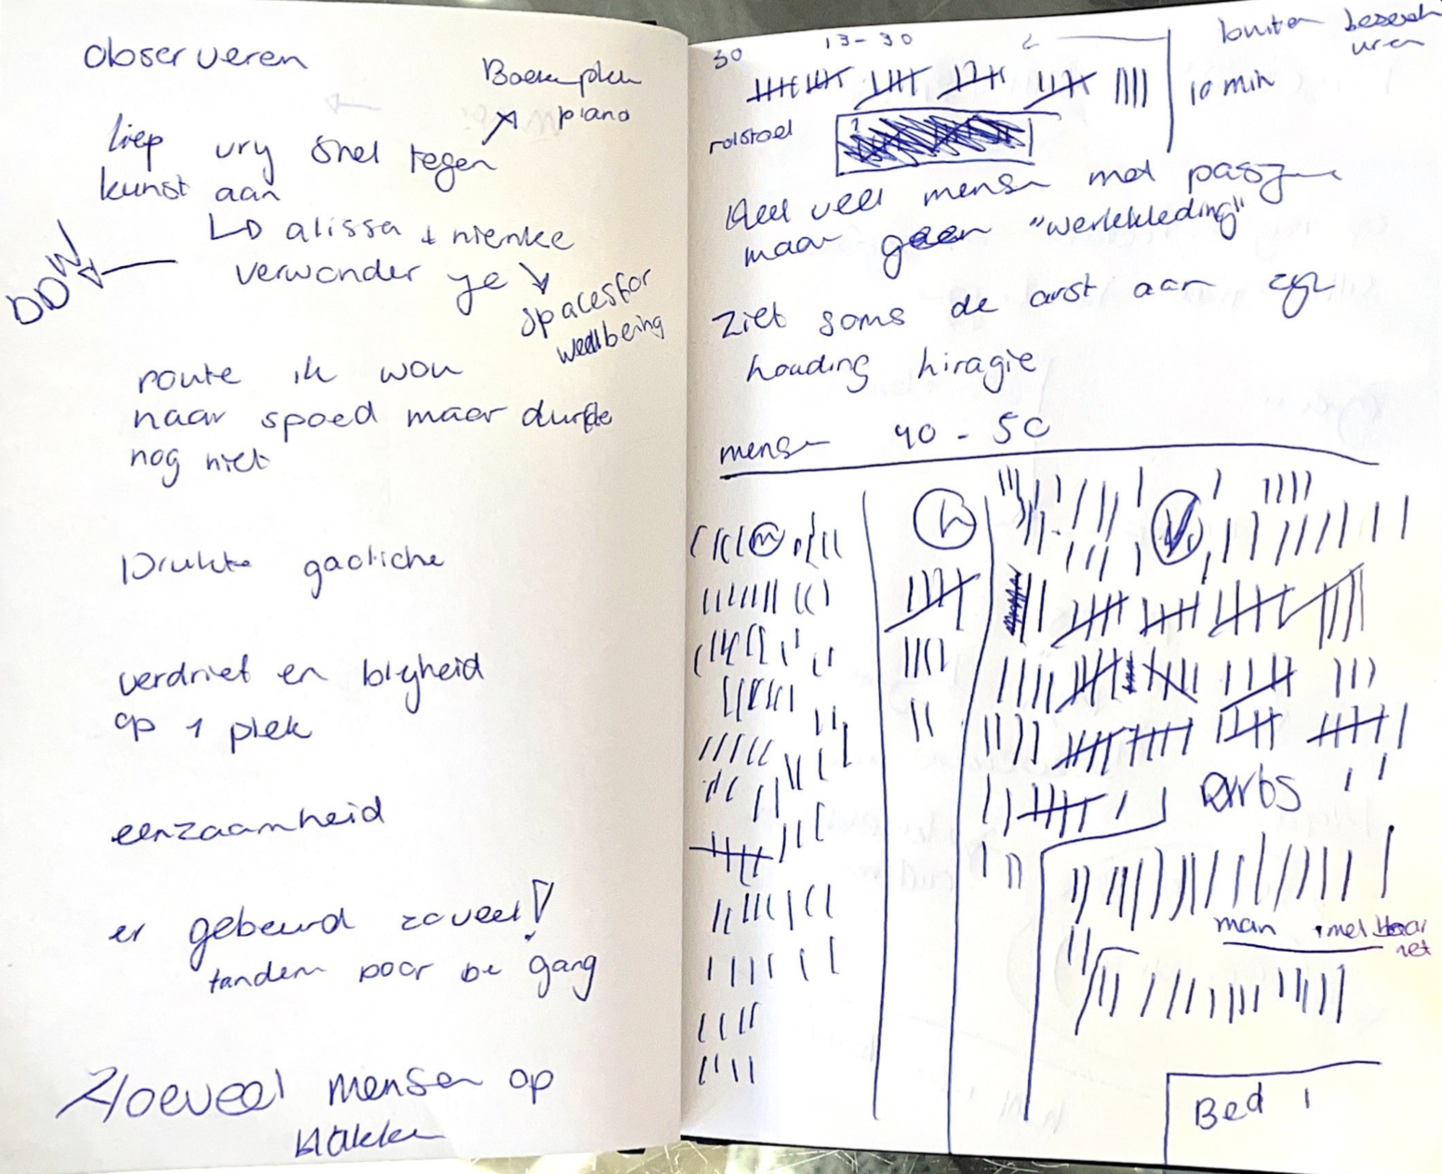 observeren
Boekenplek
piano
liep vry snel tegen
kunst aan
alissa + nienke
verwonder ye
DDW!
spacesfor
wellbeing
route ik wou
naar spoed maar durfde
nog niet
Drukte
verdriet en blyheid
op 1 plek
eenzaamheid
er gebeurd zoveel!
tandem door de gang
Hoeveel mensen op
Hakken
30
13-30
buiten bezoek
uren
10 min
rolstoel
Heel veel mensen met
maar geen "werkkleding"
Ziet soms de arst aan zyn
houding hiragie
mensen 40-50
m
h
V
Arts
man met Haar
net
Bed 1